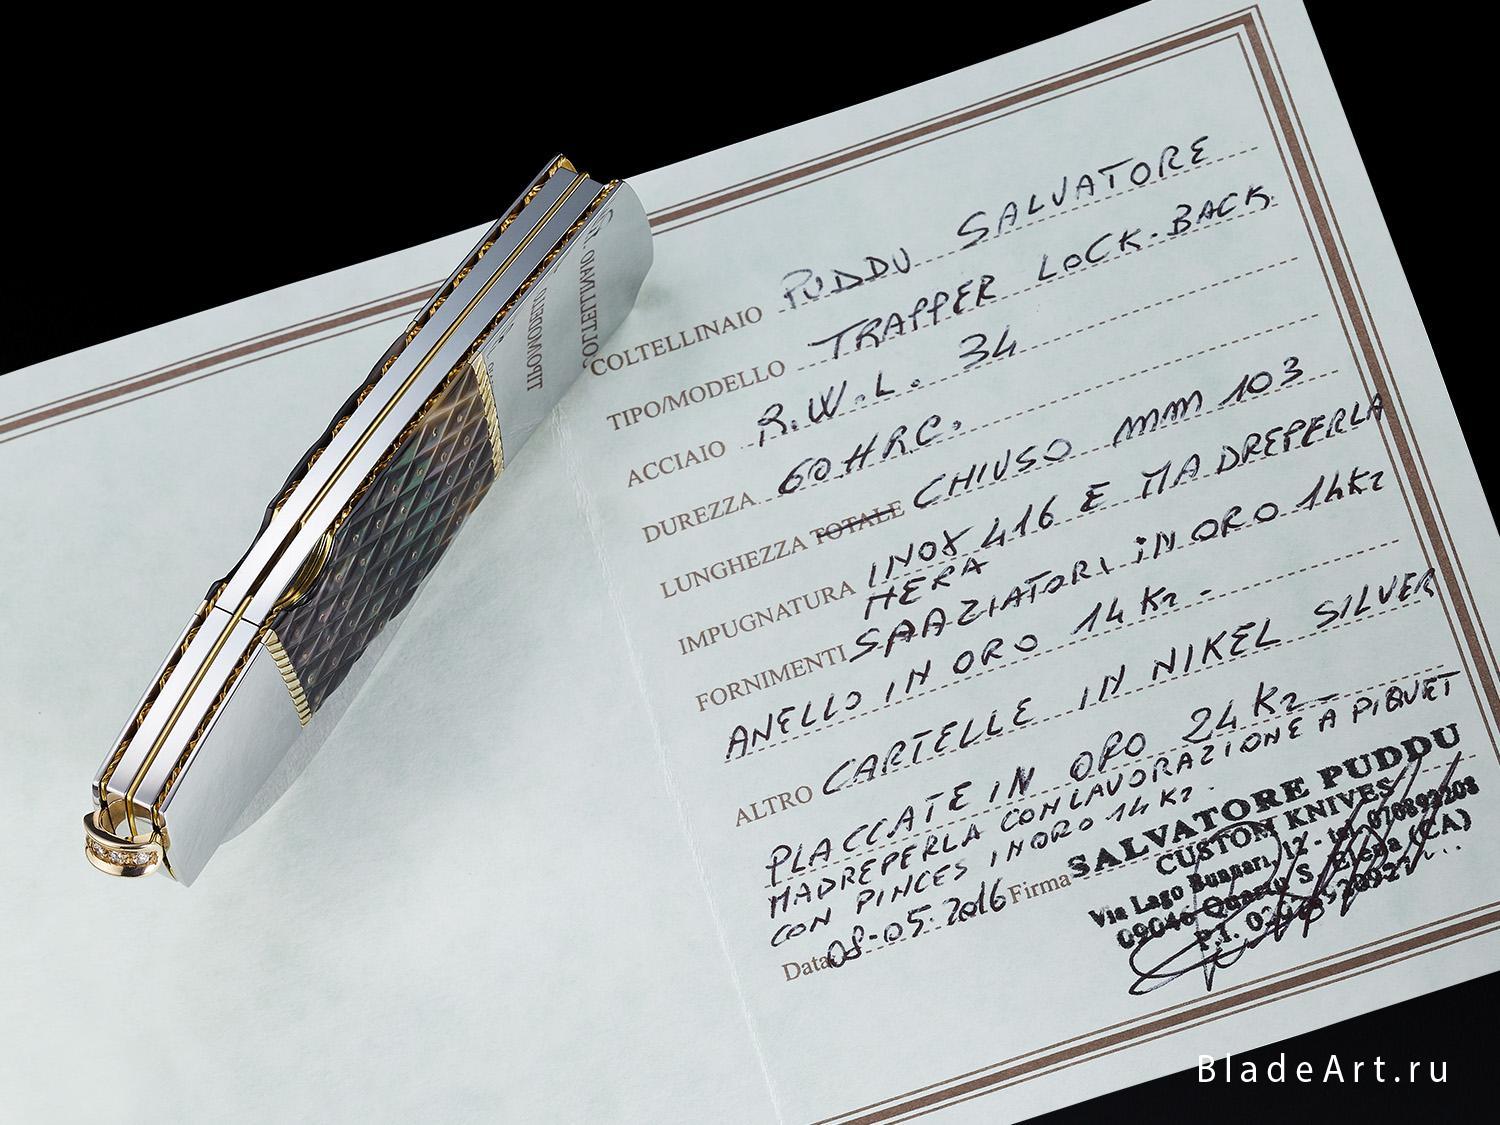 COLTELLINAIO PUDDU SALVATORE
TIPO/MODELLO TRAPPER LOCK-BACK
ACCIAIO R.W.L. 34
DUREZZA 60 HRC.
LUNGHEZZA TOTALE CHIUSO mm 103
IMPUGNATURA INOX 416 E MADREPERLA
NERA
FORNIMENTI SPAZIATORI IN ORO 14Kr
ANELLO IN ORO 14 Kr.
ALTRO CARTELLE IN NIKEL SILVER
PLACCATE IN ORO 24 Kr
MADREPERLA CON LAVORAZIONE A PIQUET
CON PINCES IN ORO 14 Kr.
Data 08-05-2016 Firma
SALVATORE PUDDU
CUSTOM KNIVES
Via Lago 12 - tel.
09046 Quartu S. Elena (CA)
P.I.
BladeArt.ru